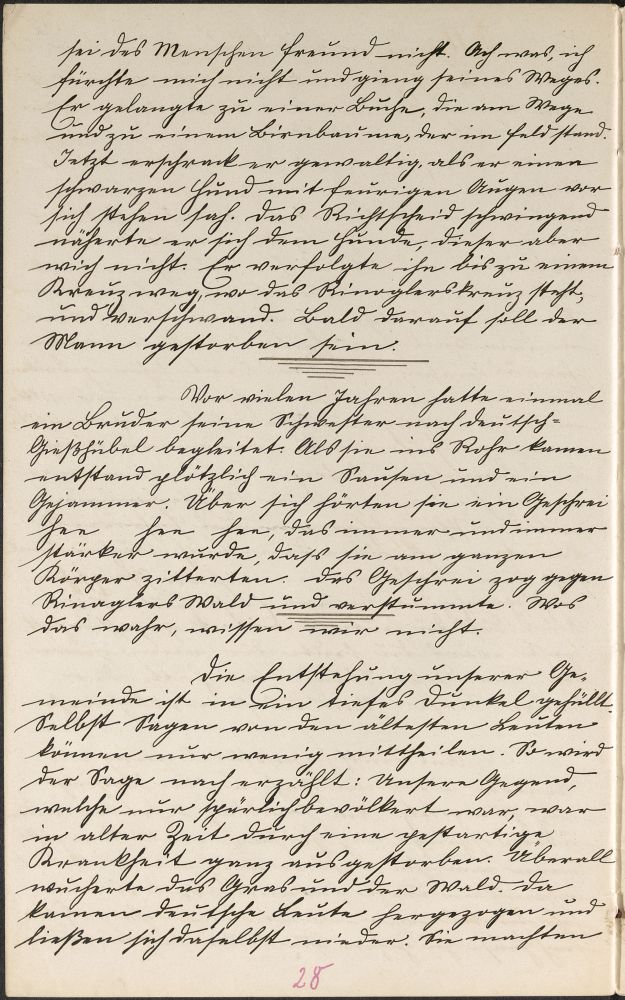 sei des Menschen Freund nicht. Ach was, ich
fürchte mich nicht und gieng seines Weges.
Er gelangte zu einer Buche, die am Wege
und zu einem Birnbaume, der im Feld stand.
Jetzt erschrack er gewaltig, als er einen
schwarzen Hund mit feurigen Augen vor
sich stehen sah. Das Richtscheid schwingend
näherte er sich dem Hunde, dieser aber
wich nicht. Er verfolgte ihn bis zu einem
Kreuzweg, wo das Rinoglerskreuz steht,
und verschwand. Bald darauf soll der
Mann gestorben sein.
Vor vielen Jahren hatte einmal
ein Bruder seine Schwester nach deutsch-
Gießhübel begleitet. Als sie ins Rohr kamen
entstand plötzlich ein Sausen und ein
Gejammer. Über sich hörten sie ein Geschrei
hee hee hee, das immer und immer
stärker wurde, dass sie am ganzen
Körper zitterten. Das Geschrei zog gegen
Rinaglers Wald und verstummte. Was
das wahr, wissen wir nicht.
Die Entstehung unserer Ge-
meinde ist in ein tiefes Dunkel gehüllt.
Selbst Sagen von den ältesten Leuten
können nur wenig mittheilen. So wird
der Sage nach erzählt: Unsere Gegend,
welche nur spärlich bevölkert war, war
in alter Zeit durch eine pestartige
Krankheit ganz ausgestorben. Überall
wucherte das Gras und der Wald. Da
kamen deutsche Leute hergezogen und
ließen sich daselbst nieder. Sie machten
28